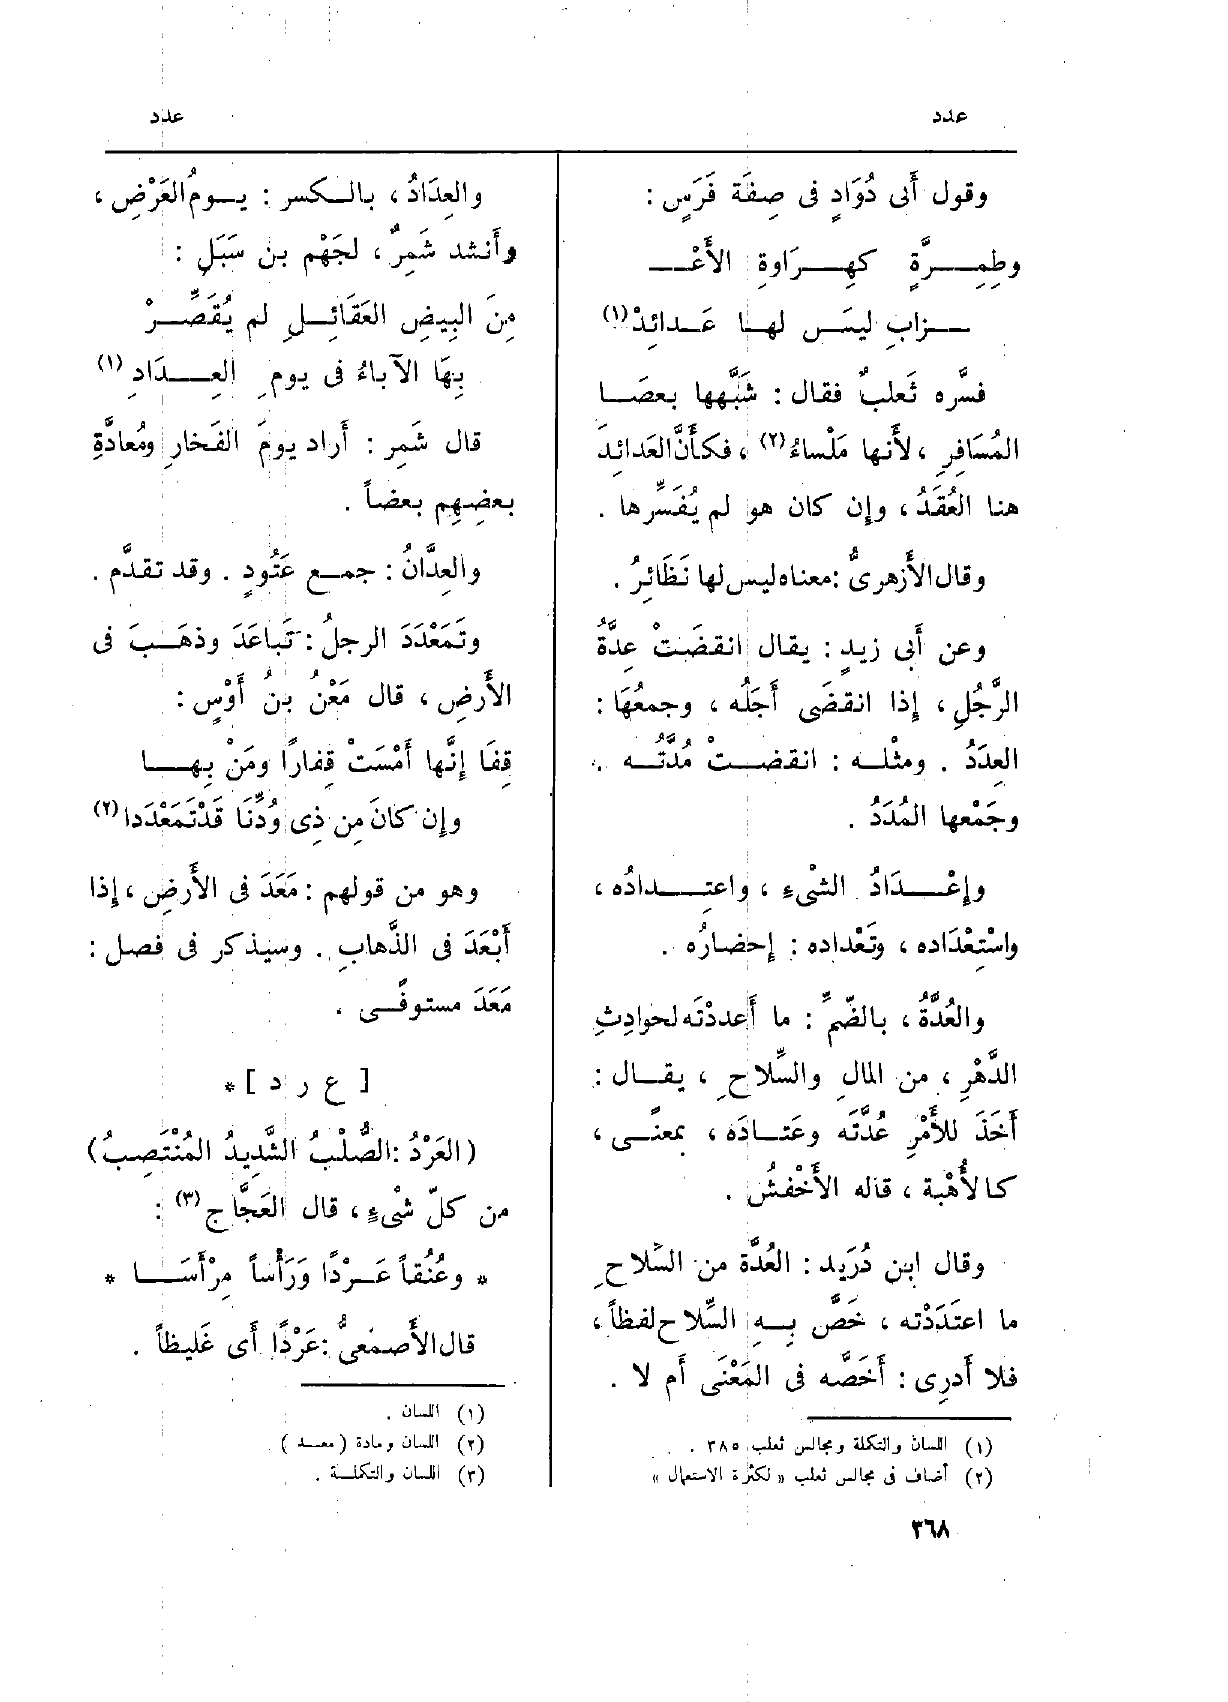 عدد
عدد
وقول أَبى دُوَادٍ فى صِفَة فَرَسٍ :
وطِمِــرَّةٍ كهِــرَاوةِ الأَعْـ
ـزابِ ليسَ لهـا عَـدائِدْ (١)
فسَّره ثَعلبٌ فقال : شَبَّهها بعصَـا
المُسَافِرِ ، لأَنها مَلْساءُ (٢) ، فكأَنَّ العَدائِدَ
هنا العُقَدُ ، وإِن كان هو لم يُفَسِّرها .
وقال الأَزهرىُّ : معناه ليس لها نَظَائِرُ .
وعن أَبى زيدٍ : يقال انقضَتْ عِدَّةُ
الرَّجُلِ ، إِذا انقضَى أَجَلُه ، وجمعُهَا :
العِدَدُ . ومثْلـه : انقضـتْ مُدَّتُـه .
وجَمْعها المُدَدُ .
وإِعْـدَادُ الشْىءِ ، واعتِـدادُه ،
واسْتِعْدَاده ، وتَعْداده : إِحضارُه .
والعُدَّةُ ، بالضّمِّ : ما أَعددْتَه لحوادِثِ
الدَّهْرِ ، من المالِ والسِّلاحِ ، يقـال :
أَخَذَ للأَمْرِ عُدَّتَه وعَتـادَه ، بمعنًـى ،
كالأُهْبة ، قاله الأَخْفشُ .
وقال ابن دُرَيد : العُدَّة من السِّلاحِ
ما اعتَدَدْته ، خَصَّ بِـهِ السِّلاحَ لفظاً ،
فلا أَدرِى : أَخَصَّه فى المَعْنَى أَم لا .
(١) اللسان والتكلة ومجالس ثعلب ٣٨٥ .
(٢) أضاف فى مجالس ثعلب « لكثرة الاستعمال »
والعِدَادُ ، بالـكسر : يـومُ العَرْضِ ،
وأَنشد شَمِرٌ ، لجَهْم بن سَبَلٍ :
مِنَ البِيضِ العَقَائـلِ لم يُقَصِّـرْ
بِهَا الآباءُ فى يومِ العِـدَادِ (١)
قال شَمِر : أَراد يومَ الفَخارِ ومُعادَّةِ
بعضِهِم بعضاً .
والعِدَّانُ : جمـع عَتُودٍ . وقد تقدَّم .
وتَمَعْدَدَ الرجلُ : تَباعَدَ وذهَـبَ فى
الأَرضِ ، قال مَعْنُ بنُ أَوْسٍ :
قِفَا إِنَّها أَمْسَتْ قِفارًا ومَنْ بِهـا
وإِن كانَ مِن ذِى وُدِّنَا قَدْ تَمَعْدَدا (٢)
وهو من قولهم : مَعَدَ فى الأَرضِ ، إِذا
أَبْعَدَ فى الذَّهابِ . وسيذكر فى فصل :
مَعَدَ مستوفًـى .
[ ع ر د ] *
(العَرْدُ : الصُّلْبُ الشَّدِيدُ المُنْتَصِبُ)
من كلّ شْىءٍ ، قال العَجَّاج (٣) :
* وعُنُقاً عَـرْدًا وَرَأْساً مِرْأَسَـا *
قال الأَصمَعىُّ : عَرْدًا أَى غَليظاً .
(١) اللسان .
(٢) اللسان ومادة (معـد ) .
(٣) اللسان والتكلـة .
٣٦٨